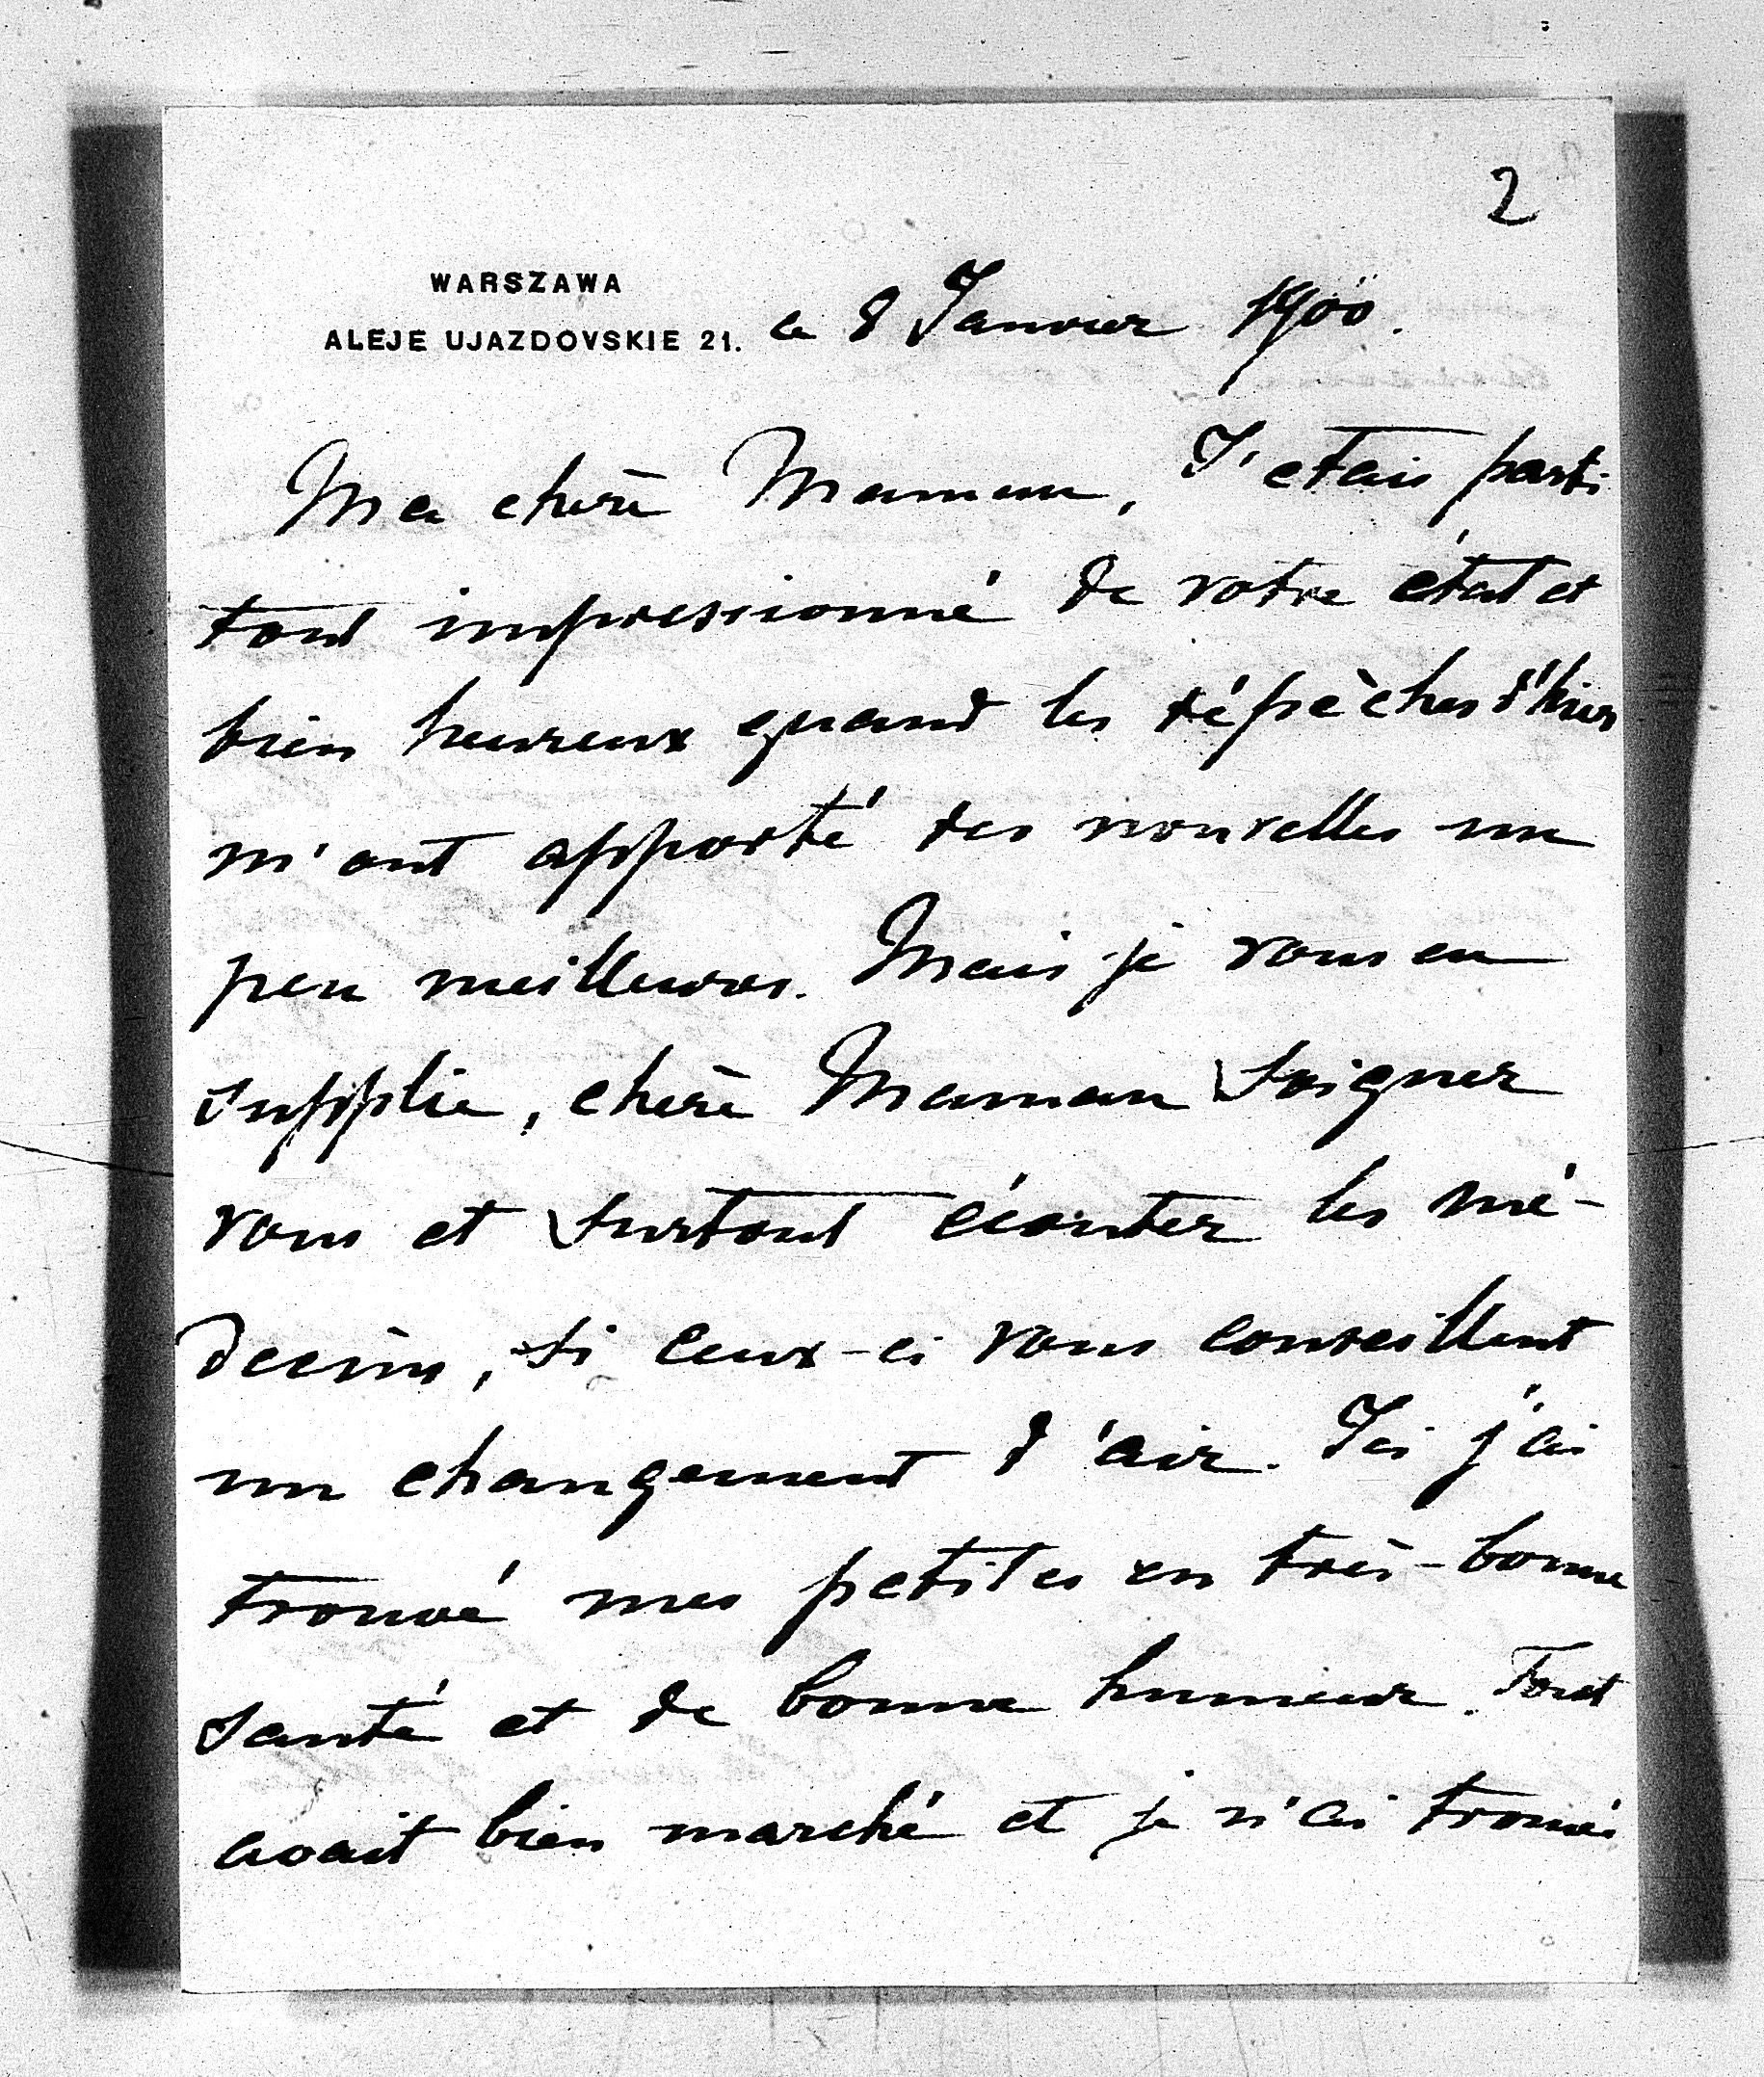 2
WARSZAWA
ALEJE UJAZDOVSKIE 21. le 8 Janvier 1900.
Ma chère Maman, J'etais parti
tout impressionné de votre état et
bien heureux quand les dépèches d'hier
m'ont apporté des nouvelles un
peu meilleures. Mais je vous en
supplie, chère Maman soignez
vous et surtout écoutez les mé-
decins, si ceux-ci vous conseillent
un changement d'air. Ici j'ai
trouvé mes petites en très-bonne
santé et de bonne humeur. Tout
avait bien marché et je n'ai trouvé